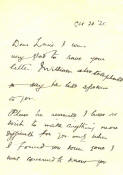 Oct 20 '25
Dear Louis I was
very glad to have your
letter. William also telephoned
to say he had spoken
to you.
Please be assured I have no
wish to make anything more
difficult for you and when
I found you were gone I
was concerned to know you